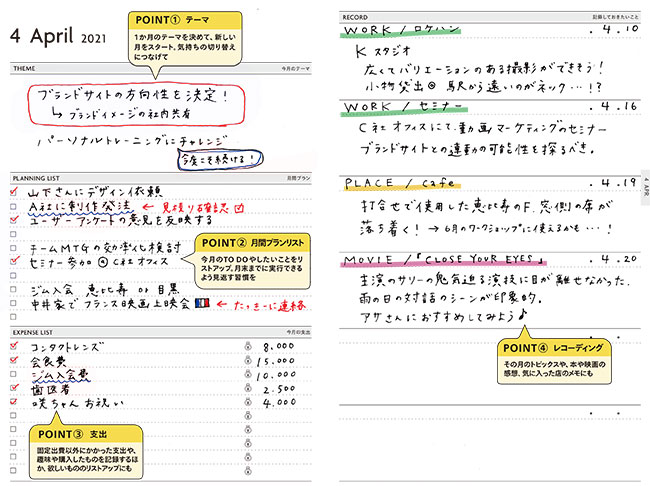 4 April 2021
POINT① テーマ
1か月のテーマを決めて、新しい
月をスタート、気持ちの切り替え
につなげて
THEME 今月のテーマ
ブランドサイトの方向性を決定！
↳ ブランドイメージの社内共有
パーソナルトレーニングにチャレンジ
今度こそ続ける！
PLANNING LIST 月間プラン
山下さんにデザイン依頼
A社に制作発注 ← 見積り確認 ☑
ユーザーアンケートの意見を反映する
チームMTGの効率化検討
セミナー参加 @ C社オフィス
POINT② 月間プランリスト
今月のTO DOやしたいことをリ
ストアップ。月末までに実行できる
よう見返す習慣を
ジム入会 恵比寿 or 目黒
中井家でフランス映画上映会 ← たっきーに連絡
EXPENSE LIST 今月の支出
コンタクトレンズ 8.000
会食費 15.000
ジム入会費 10.000
歯医者 2.500
咲ちゃんお祝い 4.000
POINT③ 支出
固定出費以外にかかった支出や、
趣味や購入したものを記録するほ
か、欲しいもののリストアップにも
RECORD 記録しておきたいこと
WORK / ロケハン . 4.10
Kスタジオ
広くてバリエーションのある撮影ができそう！
小物貸出◎ 駅から遠いのがネック…!?
WORK / セミナー . 4.16
C社オフィスにて、動画マーケティングのセミナー
ブランドサイトとの連動の可能性を探るべき。
PLACE / Cafe . 4.19
打合せで使用した恵比寿のF. 窓側の席が
落ち着く！ → 6月のワークショップに使えるかも…！
MOVIE /『CLOSE YOUR EYES』 . 4.20
主演のサリーの鬼気迫る演技に目が離せなかった.
雨の日の対話のシーンが印象的.
アサさんにおすすめしてみよう♪
POINT④ レコーディング
その月のトピックスや、本や映画の
感想、気に入った店のメモにも
4 APR